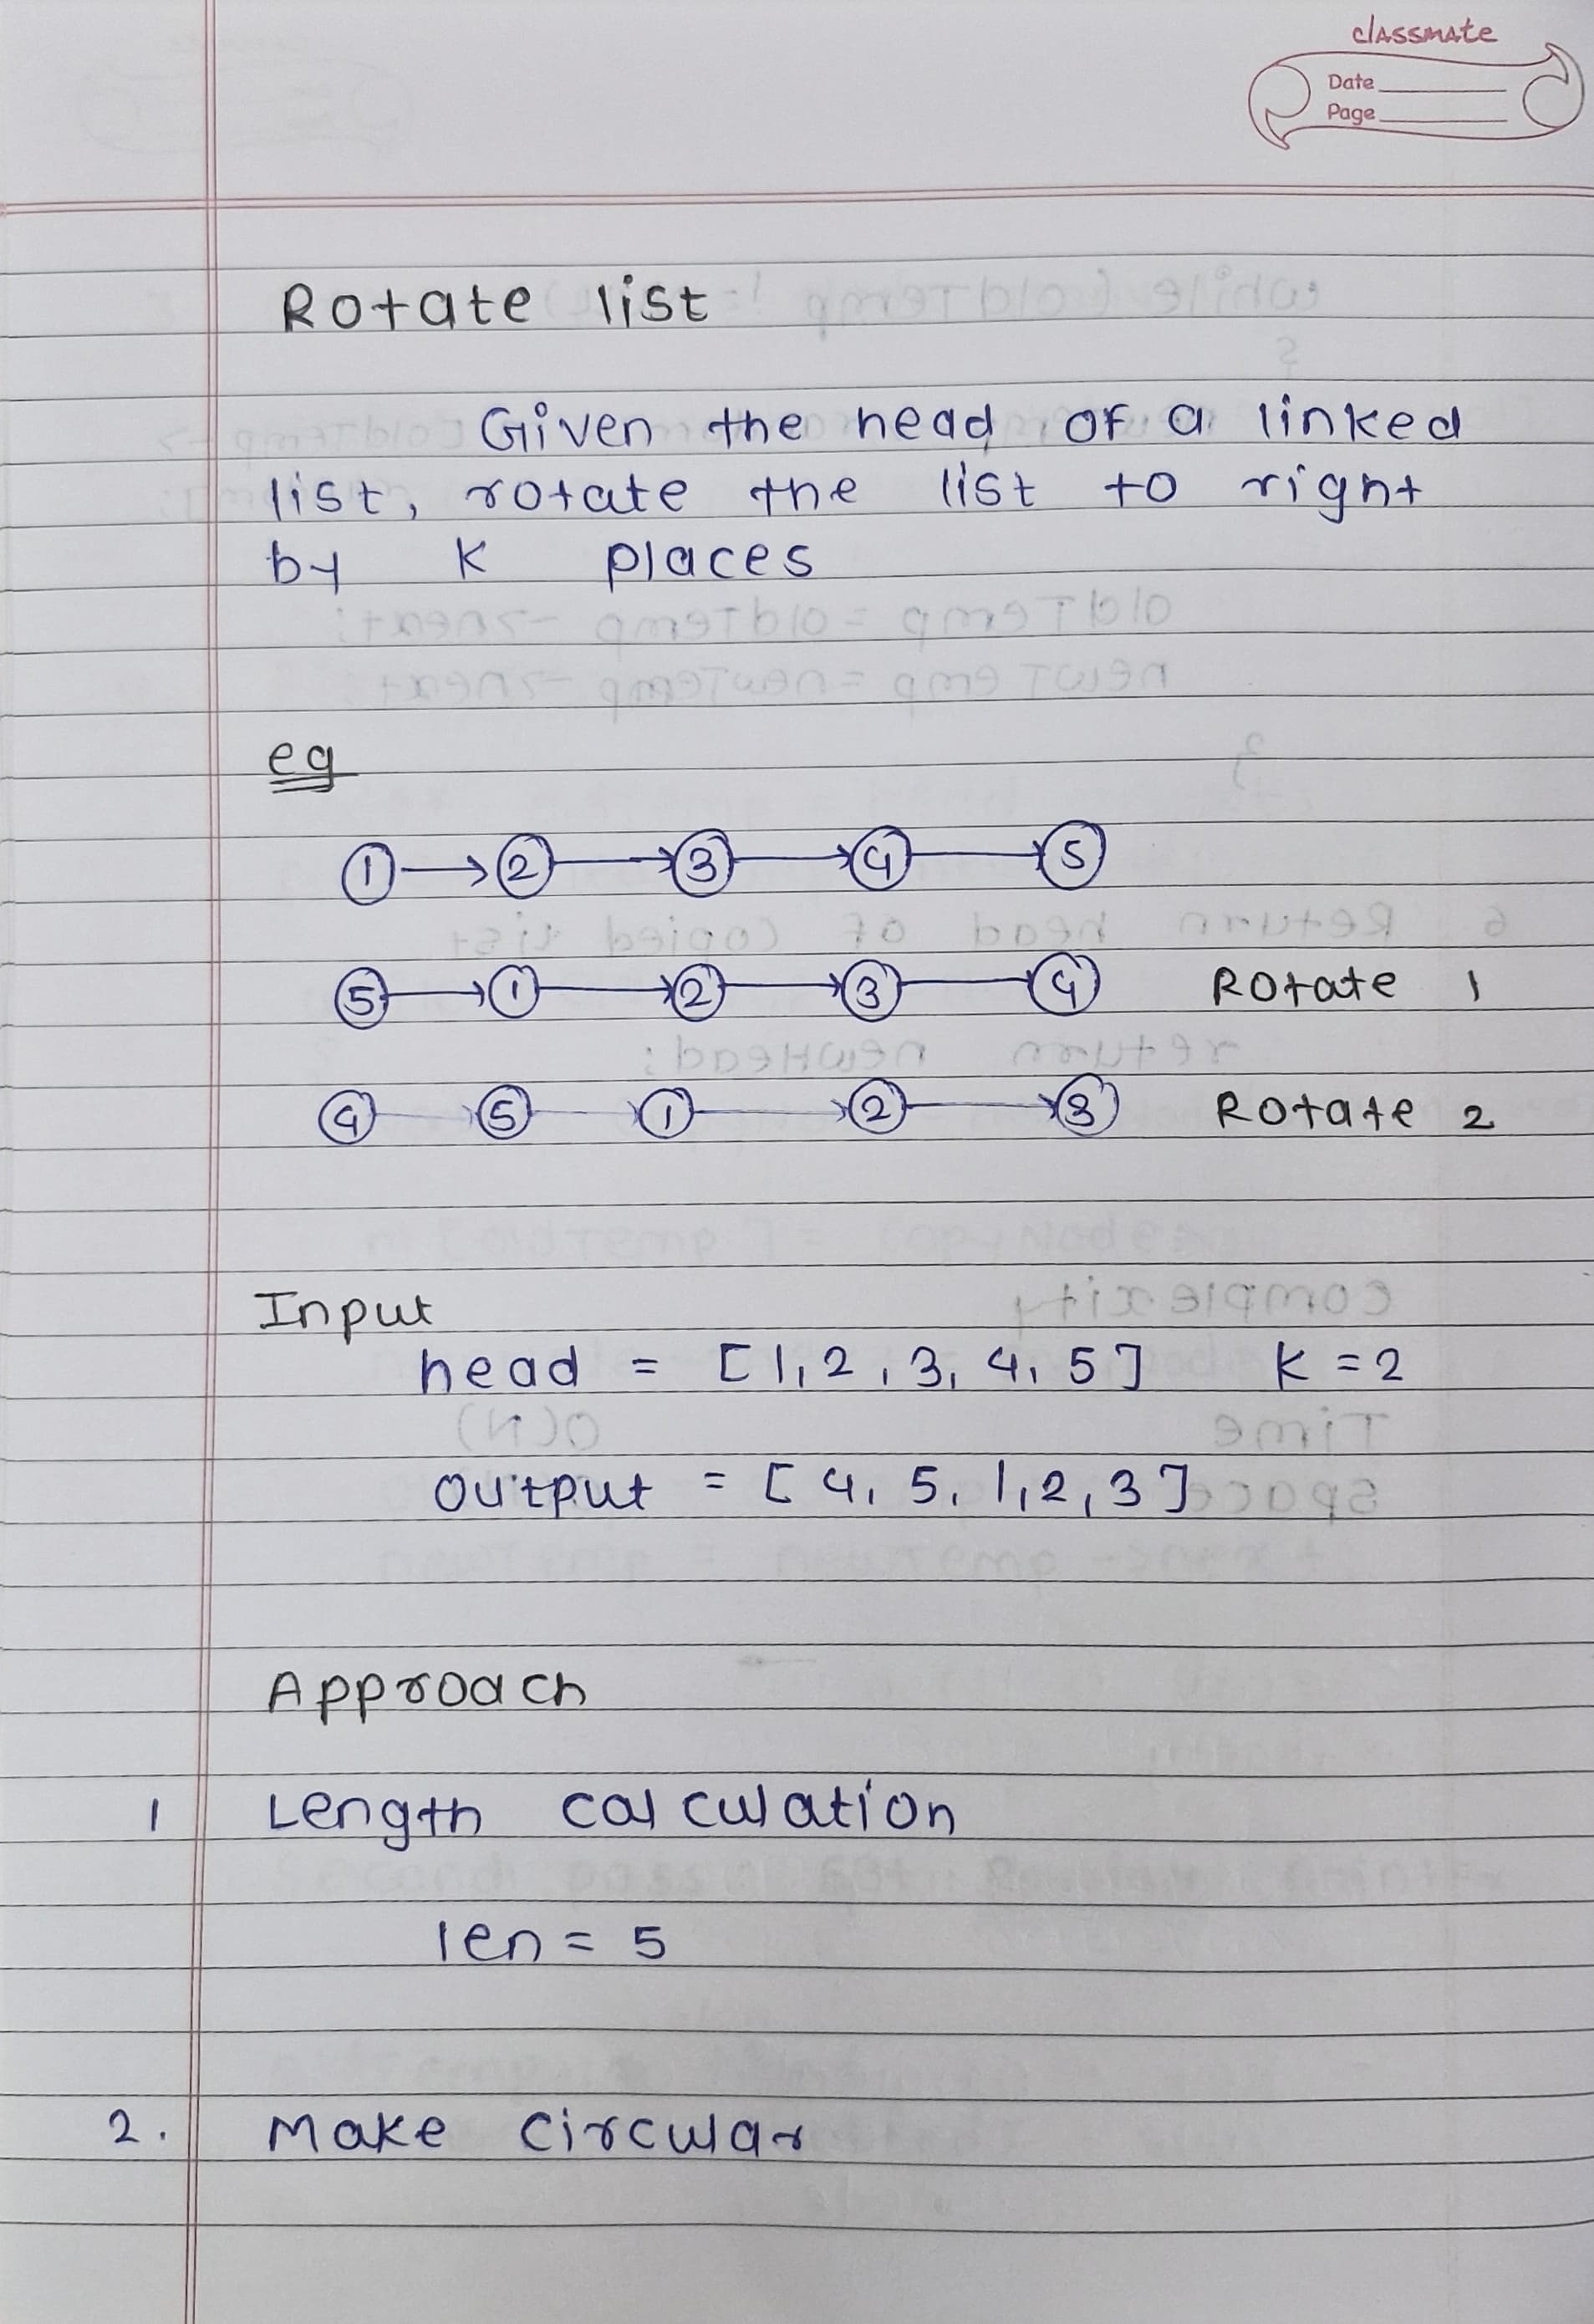 classmate
Date
Page
Rotate list
Given the head of a linked
list, rotate the list to right
by K places
eg
1 → 2 → 3 → 4 → 5
5 → 1 → 2 → 3 → 4 Rotate 1
4 → 5 → 1 → 2 → 3 Rotate 2
Input
head = [1, 2, 3, 4, 5] K = 2
Output = [4, 5, 1, 2, 3]
Approach
1 Length calculation
len = 5
2. Make circular